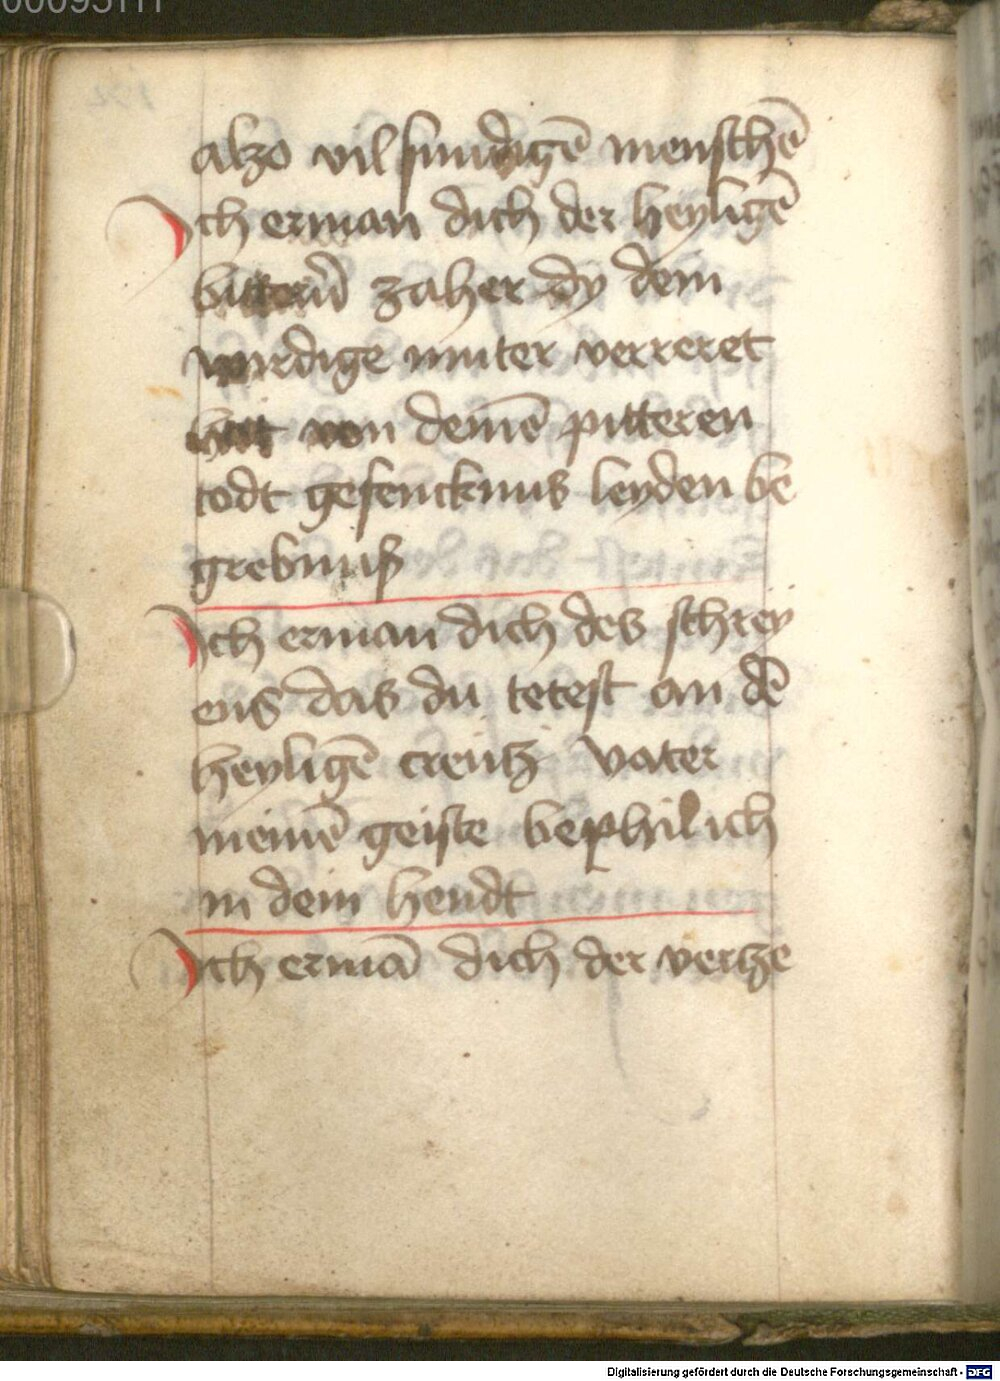 00095111
also vil sundigē menschē
Ich erman dich der heyligē
bitterū zaher dy dein
wirdige muter verreret
hatt von deinē pitteren
todt gefencknus leyden be
grebnuß
Ich erman dich des schrey
ens das du tetest an dē
heyligē creutz Vater
meinē geiste bephil ich
in dein hendt
Ich ermā dich der vertze
Digitalisierung gefördert durch die Deutsche Forschungsgemeinschaft - DFG